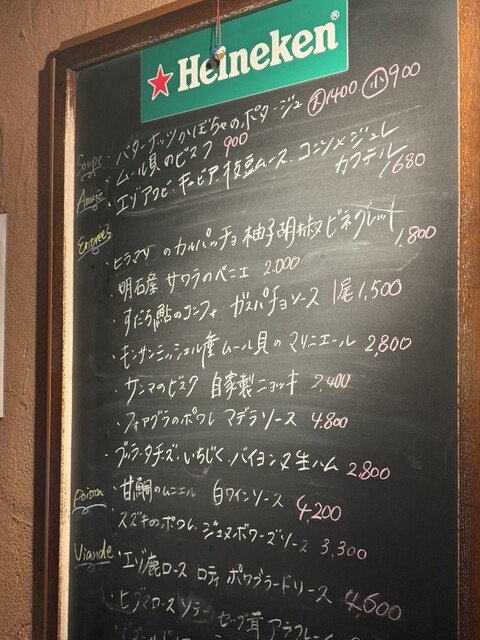 Heineken
Soupe ・バターナッツかぼちゃのポタージュ 大1400 小900
・ムール貝のビスク 900
Amuse ・エゾアワビ・キャビア・枝豆ムース・コンソメジュレ
カクテル 1,680
Entrées
・ヒラマサのカルパッチョ 柚子胡椒ビネグレット 1,800
・明石産 サワラのベニエ 2.000
・すだち鮎のコンフィ ガスパチョソース 1尾1,500
・モンサンミッシェル産 ムール貝のマリニエール 2,800
・サンマのビスク 自家製ニョッキ 2,400
・フォアグラのポワレ マデラソース 4.800
・ブッラータチーズ・いちじく・バイヨンヌ生ハム 2,800
Poisson ・甘鯛のムニエル 白ワインソース 4,200
・スズキのポワレ・ジュヌボワーズソース 3,300
Viande ・エゾ鹿ロース ロティ ポワヴラードソース 4,600
・ヒグマロース ソテー セープ茸 アラクレーム